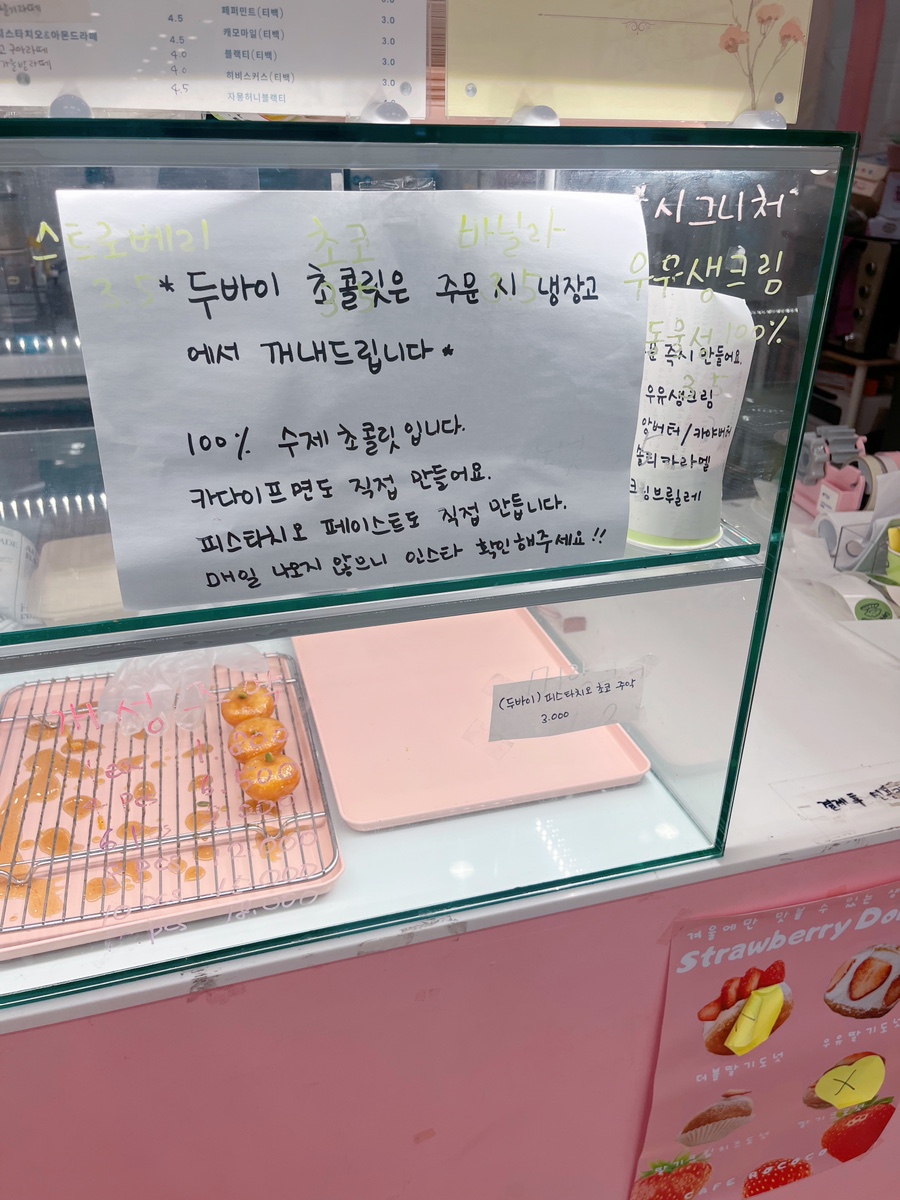 페퍼민트(티백) 3.0
4.5 캐모마일(티백) 3.0
4.5 블랙티(티백) 3.0
4.0 히비스커스(티백) 3.0
4.0
4.5 자몽허니블랙티
스트로베리 초코 바닐라
3.5
*두바이 초콜릿은 주문 시 냉장고
에서 꺼내드립니다*
100% 수제 초콜릿입니다.
카다이프면도 직접 만들어요.
피스타치오 페이스트도 직접 만듭니다.
매일 나오지 않으니 인스타 확인해주세요!!
시그니처
우유생크림
동물성 100%
3.5
즉시 만들어요.
우유생크림
앙버터/카야버터
솔티카라멜
크림브륄레
개성주악
(두바이) 피스타치오 초코 주악
3.000
결제 후
겨울에만 맛볼 수 있는
Strawberry
더블딸기도넛
우유딸기도넛
CAFE ROCOCO